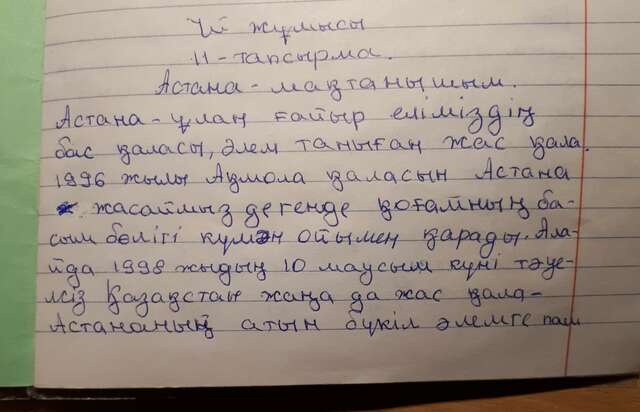 Үй жұмысы
11-тапсырма.
Астана-мақтанышым.
Астана-ұлан ғайыр еліміздің
бас қаласы, әлем таныған жас қала.
1996 жылы Ақмола қаласын Астана
жасаймыз дегенде қоғамның ба-
сым бөлігі күмән ойымен қарады. Ала-
йда 1998 жыдың 10 маусым күні тәуе-
лсіз Қазақстан жаңа да жас қала-
Астананың атын бүкіл әлемге паш